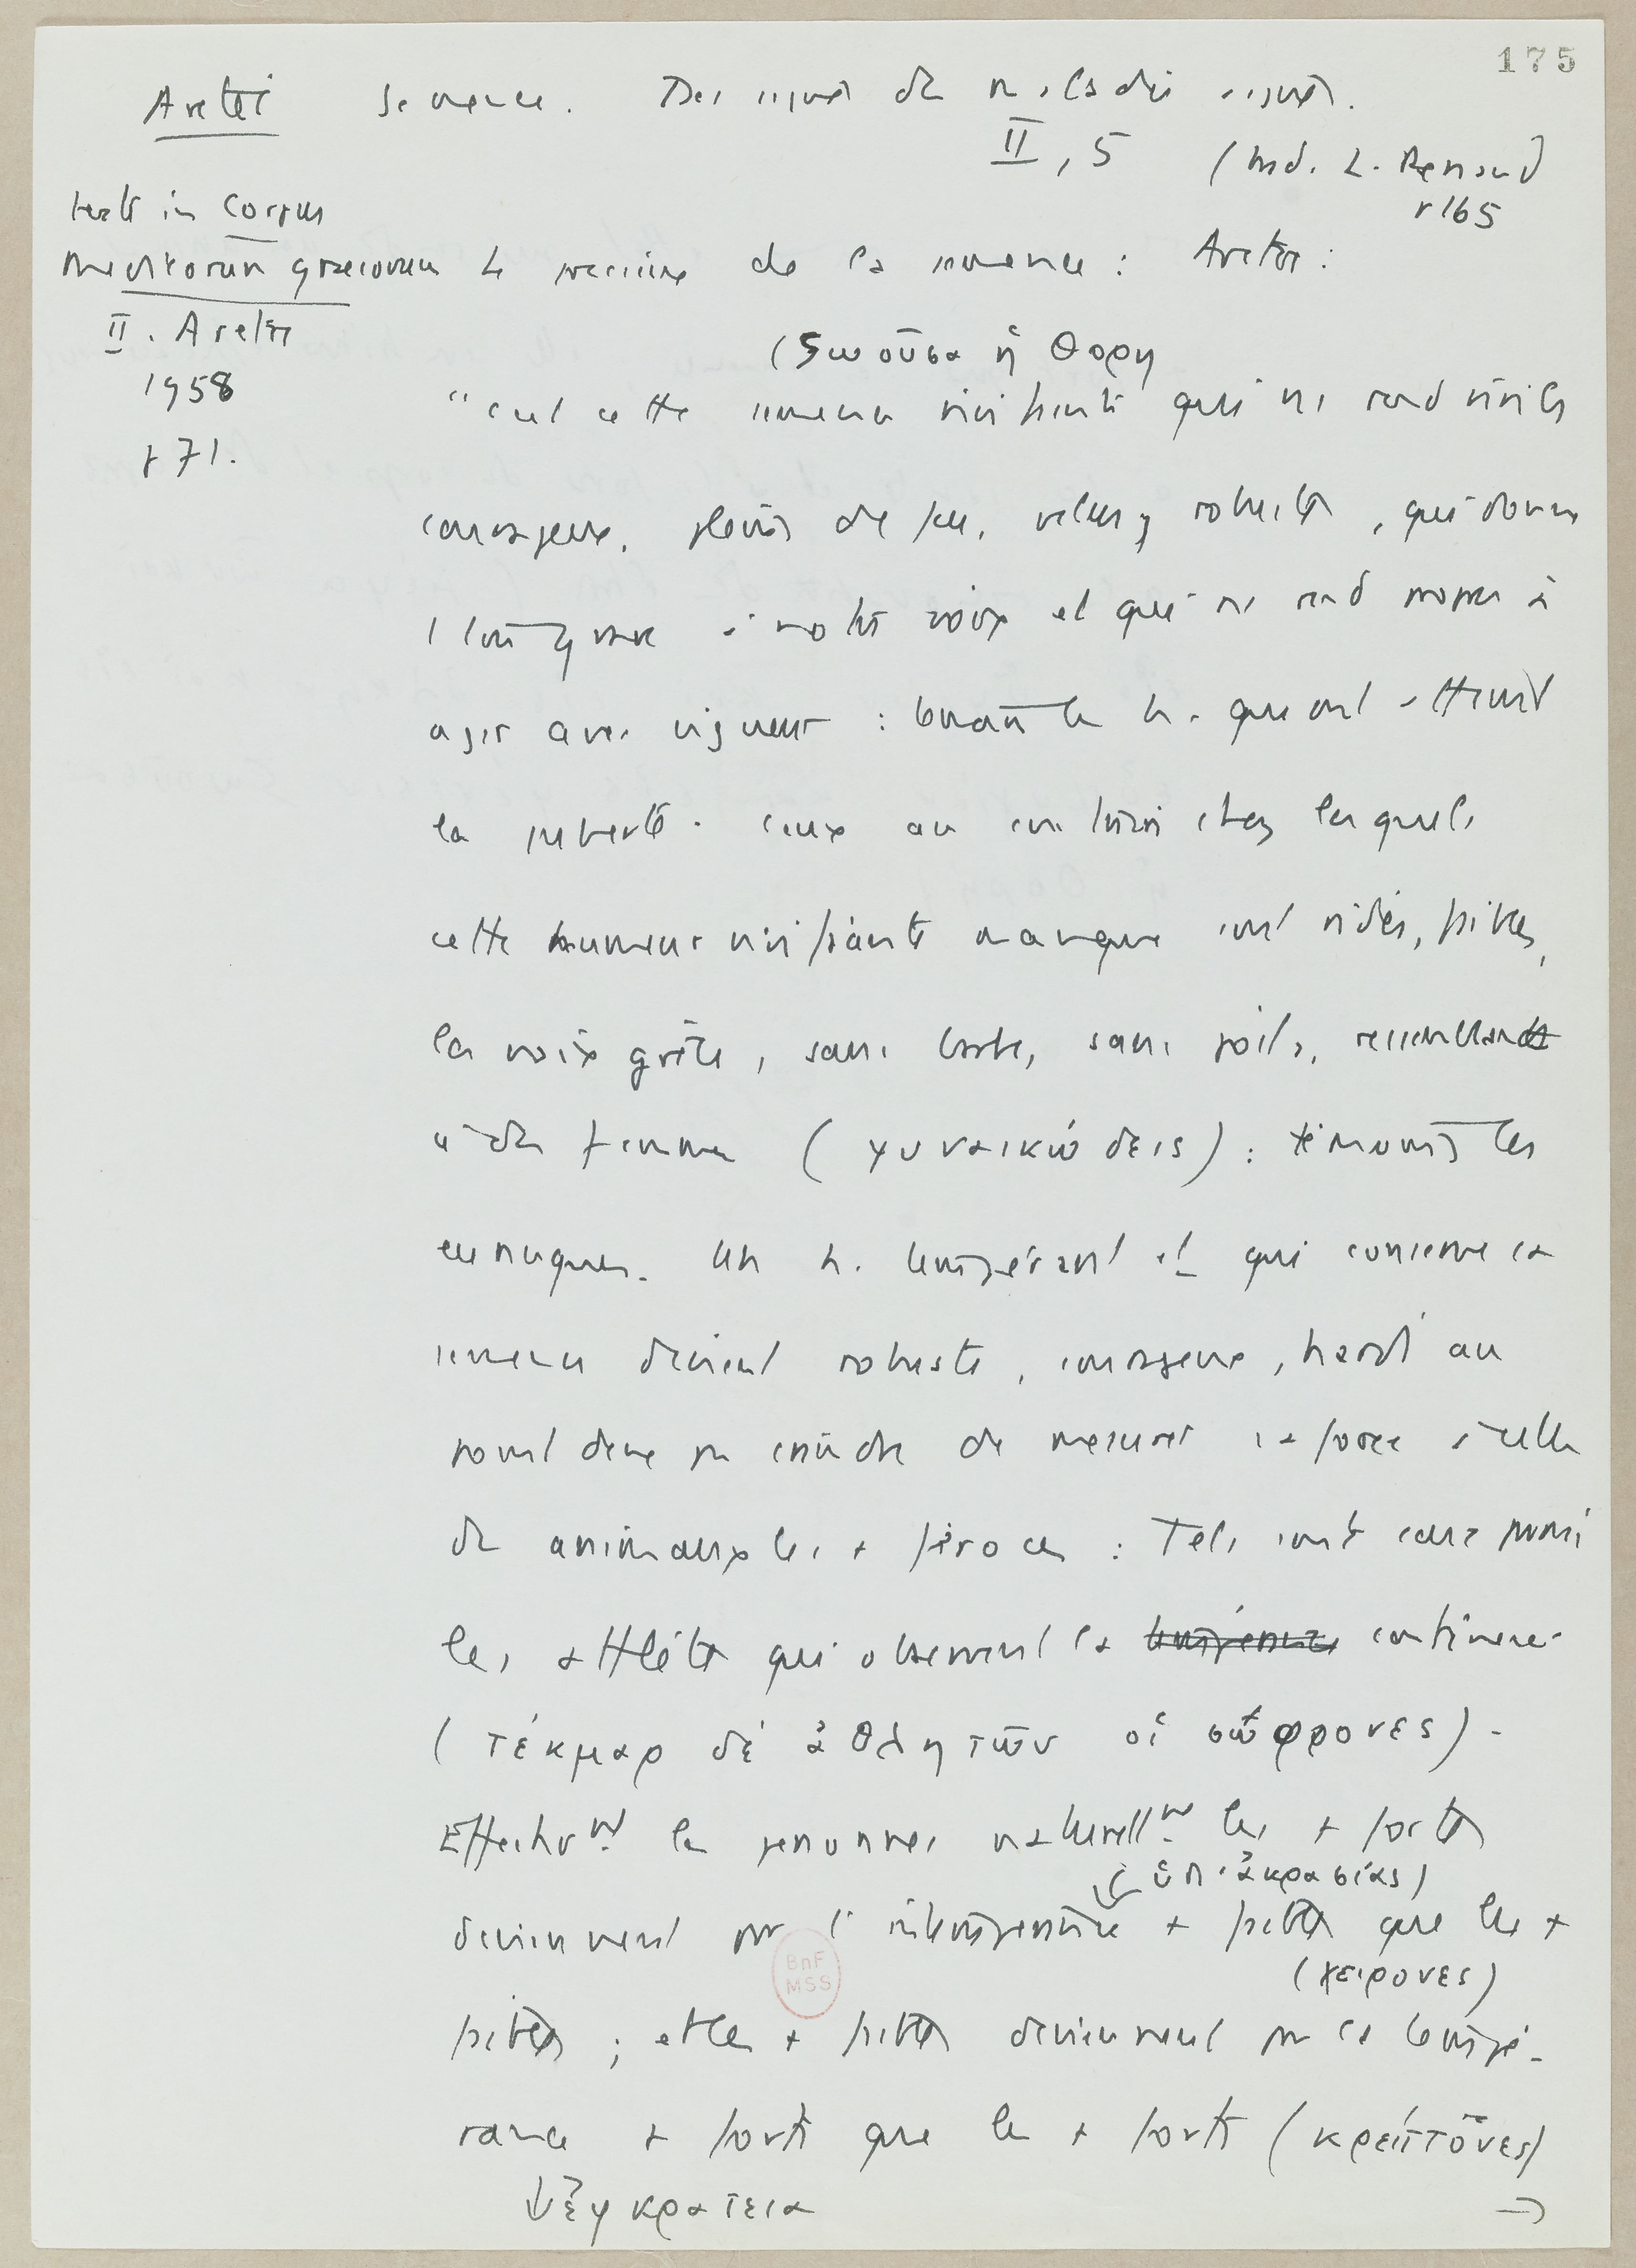 175
Arétée Semence. Des signes des maladies aiguës.
II, 5 (trad. L. Renaud
p 165
texte in Corpus
medicorum graecorum
II. Arétée
1958
p 71.
Le précieux de la semence : Arétée :
(ζωοῦσα ἡ θορη
"c'est cette semence vivifiante qui ns rend virils
courageux, pleins de feu, velus, robustes, qui donne
un ton grave à notre voix et qui ns rend propres à
agir avec vigueur : témoin les h. qui ont atteint
la puberté. Ceux au contraire chez lesquels
cette humeur vivifiante manque sont ridés, faibles,
la voix grêle, sans barbe, sans poils, ressemblant
à des femmes (γυναικώδεις) : témoins les
eunuques. Un h. tempérant et qui conserve sa
semence devient robuste, courageux, hardi au
point de ne pas craindre de mesurer sa force à celle
des animaux les + féroces : Tels sont ceux parmi
les athlètes qui observent la continence
(τέκμαρ δέ ἀθλητῶν οἱ σώφρονες).
Effectivmt les personnes naturellmt les + fortes
(ὑπ' ἀκρασίας)
deviennent par l'intempérance + faibles que les +
(χείρονες)
faibles ; et les + faibles deviennent par la tempé-
rance + fortes que les + fortes (κρείττονες)
ἐγκρατεια →
BnF
MSS